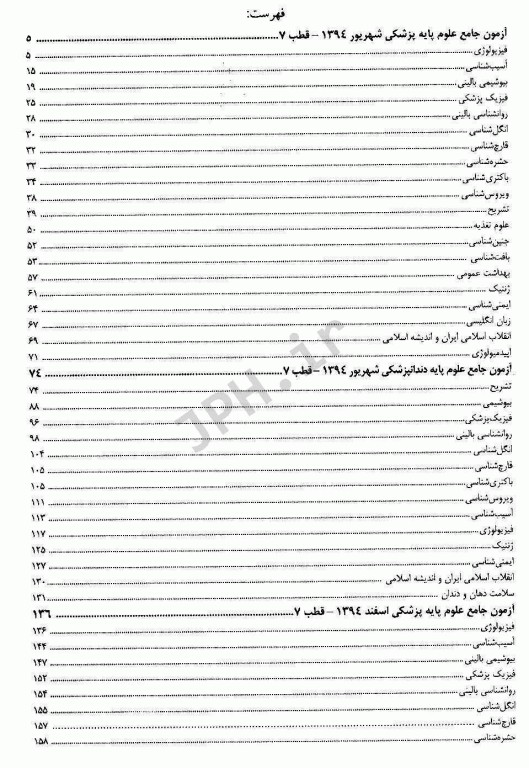 فهرست:
آزمون جامع علوم پایه پزشکی شهریور ۱۳۹۴ – قطب ۷ ............ ۵
فیزیولوژی ............ ۵
آسیب‌شناسی ............ ۱۵
بیوشیمی بالینی ............ ۱۹
فیزیک پزشکی ............ ۲۵
روانشناسی بالینی ............ ۲۸
انگل‌شناسی ............ ۳۰
قارچ‌شناسی ............ ۳۲
حشره‌شناسی ............ ۳۳
باکتری‌شناسی ............ ۳۴
ویروس‌شناسی ............ ۳۸
تشریح ............ ۳۹
علوم تغذیه ............ ۵۰
جنین‌شناسی ............ ۵۲
بافت‌شناسی ............ ۵۳
بهداشت عمومی ............ ۵۷
ژنتیک ............ ۶۱
ایمنی‌شناسی ............ ۶۴
زبان انگلیسی ............ ۶۷
انقلاب اسلامی ایران و اندیشه اسلامی ............ ۶۹
اپیدمیولوژی ............ ۷۱
آزمون جامع علوم پایه دندانپزشکی شهریور ۱۳۹۴ – قطب ۷ ............ ۷۴
تشریح ............ ۷۴
بیوشیمی ............ ۸۸
فیزیک‌پزشکی ............ ۹۶
روانشناسی بالینی ............ ۹۸
انگل‌شناسی ............ ۱۰۴
قارچ‌شناسی ............ ۱۰۵
باکتری‌شناسی ............ ۱۰۵
ویروس‌شناسی ............ ۱۱۱
آسیب‌شناسی ............ ۱۱۳
فیزیولوژی ............ ۱۱۷
ژنتیک ............ ۱۲۵
ایمنی‌شناسی ............ ۱۲۷
انقلاب اسلامی ایران و اندیشه اسلامی ............ ۱۳۰
سلامت دهان و دندان ............ ۱۳۱
آزمون جامع علوم پایه پزشکی اسفند ۱۳۹۴ – قطب ۷ ............ ۱۳۶
فیزیولوژی ............ ۱۳۶
آسیب‌شناسی ............ ۱۴۴
بیوشیمی بالینی ............ ۱۴۷
فیزیک پزشکی ............ ۱۵۲
روانشناسی بالینی ............ ۱۵۴
انگل‌شناسی ............ ۱۵۵
قارچ‌شناسی ............ ۱۵۷
حشره‌شناسی ............ ۱۵۸
JPH.ir